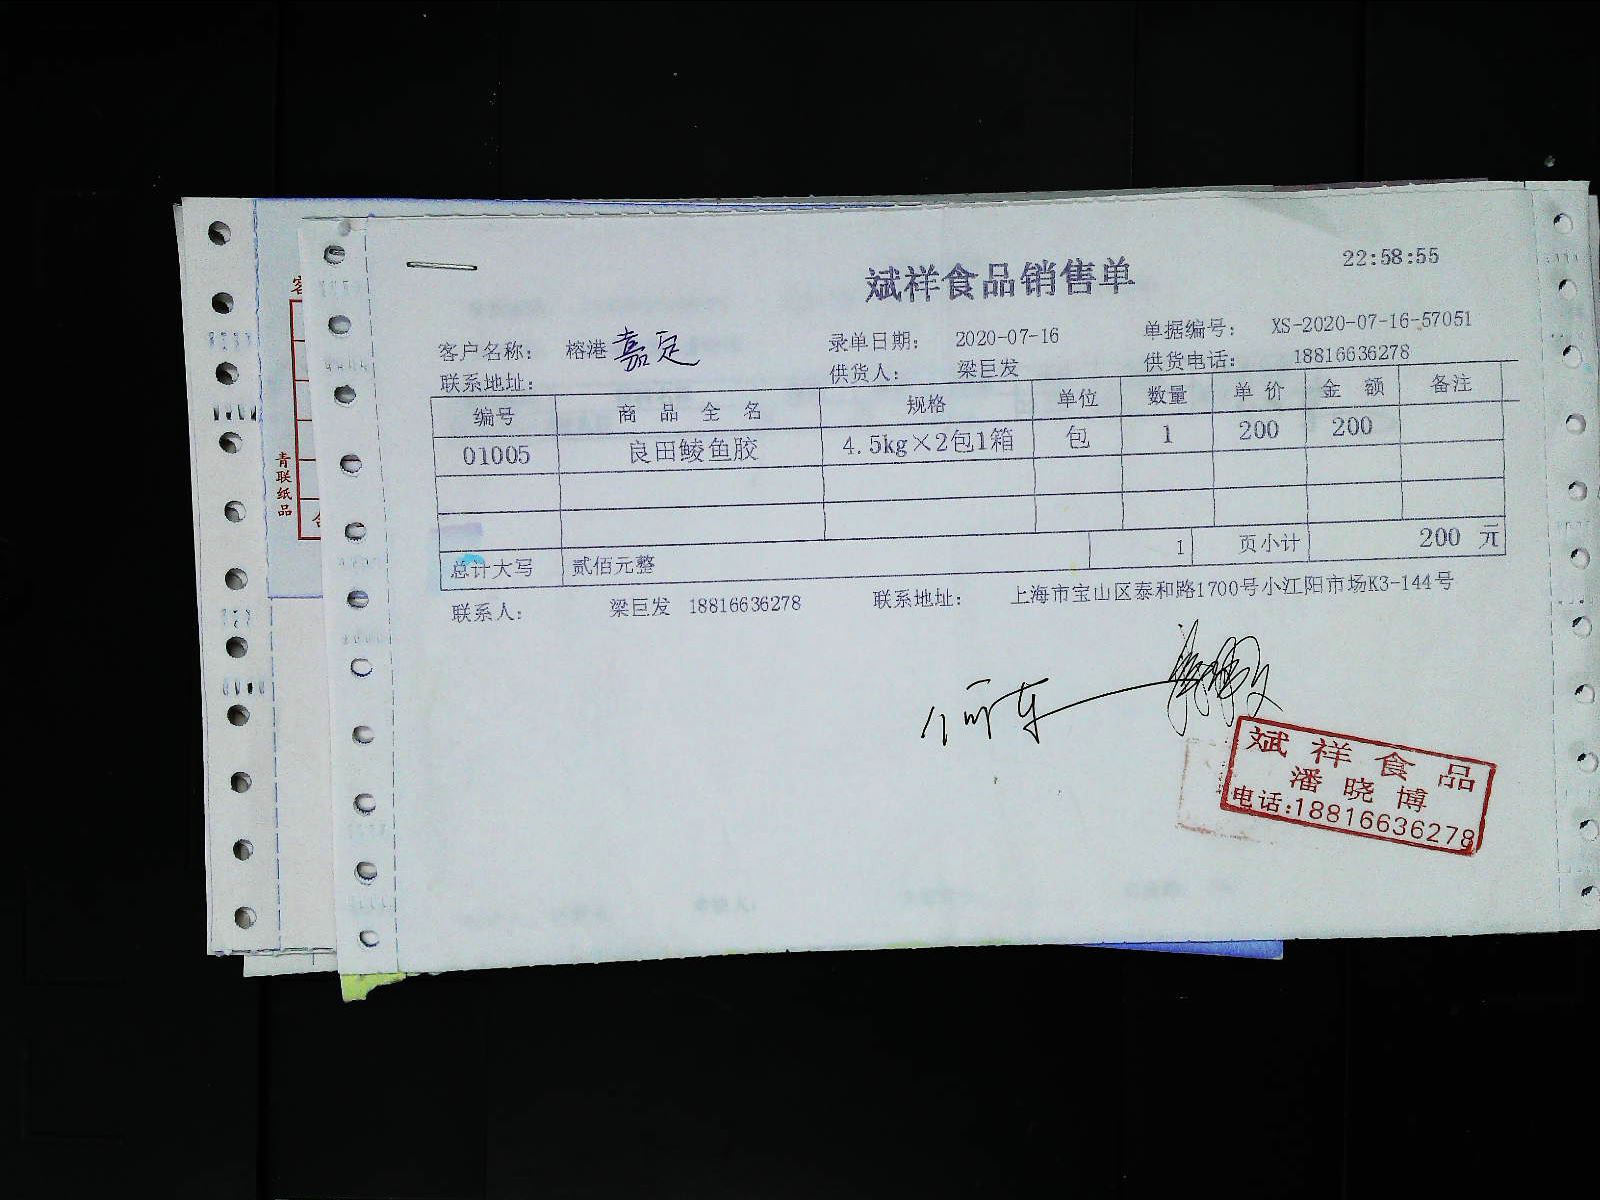 斌祥食品销售单
22:58:55
客户名称： 榕港 嘉定 录单日期： 2020-07-16 单据编号： XS-2020-07-16-57051
联系地址： 供货人： 梁巨发 供货电话： 18816636278
编号 商品全名 规格 单位 数量 单价 金额 备注
01005 良田鲮鱼胶 4.5kg×2包1箱 包 1 200 200
总计大写 贰佰元整 1 页小计 200 元
联系人： 梁巨发 18816636278 联系地址： 上海市宝山区泰和路1700号小江阳市场K3-144号
斌祥食品
潘晓博
电话:18816636278
客
青联纸品